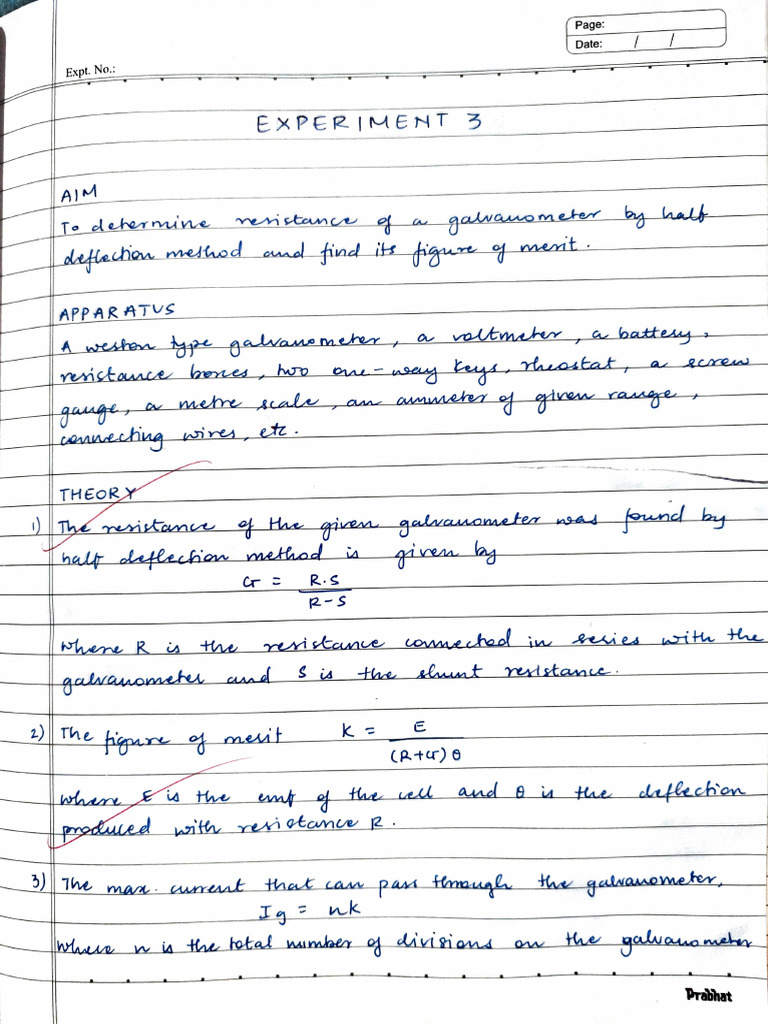 Page:
Date: / /
Expt. No.:
EXPERIMENT 3
AIM
To determine resistance of a galvanometer by half
deflection method and find its figure of merit.
APPARATUS
A weston type galvanometer, a voltmeter, a battery,
resistance boxes, two one-way keys, rheostat, a screw
gauge, a metre scale, an ammeter of given range,
connecting wires, etc.
THEORY
1) The resistance of the given galvanometer was found by
half deflection method is given by
G = R.S / R-S
where R is the resistance connected in series with the
galvanometer and S is the shunt resistance.
2) The figure of merit K = E / (R+G)θ
where E is the emf of the cell and θ is the deflection
produced with resistance R.
3) The max. current that can pass through the galvanometer,
Ig = nk
where n is the total number of divisions on the galvanometer
Prabhat